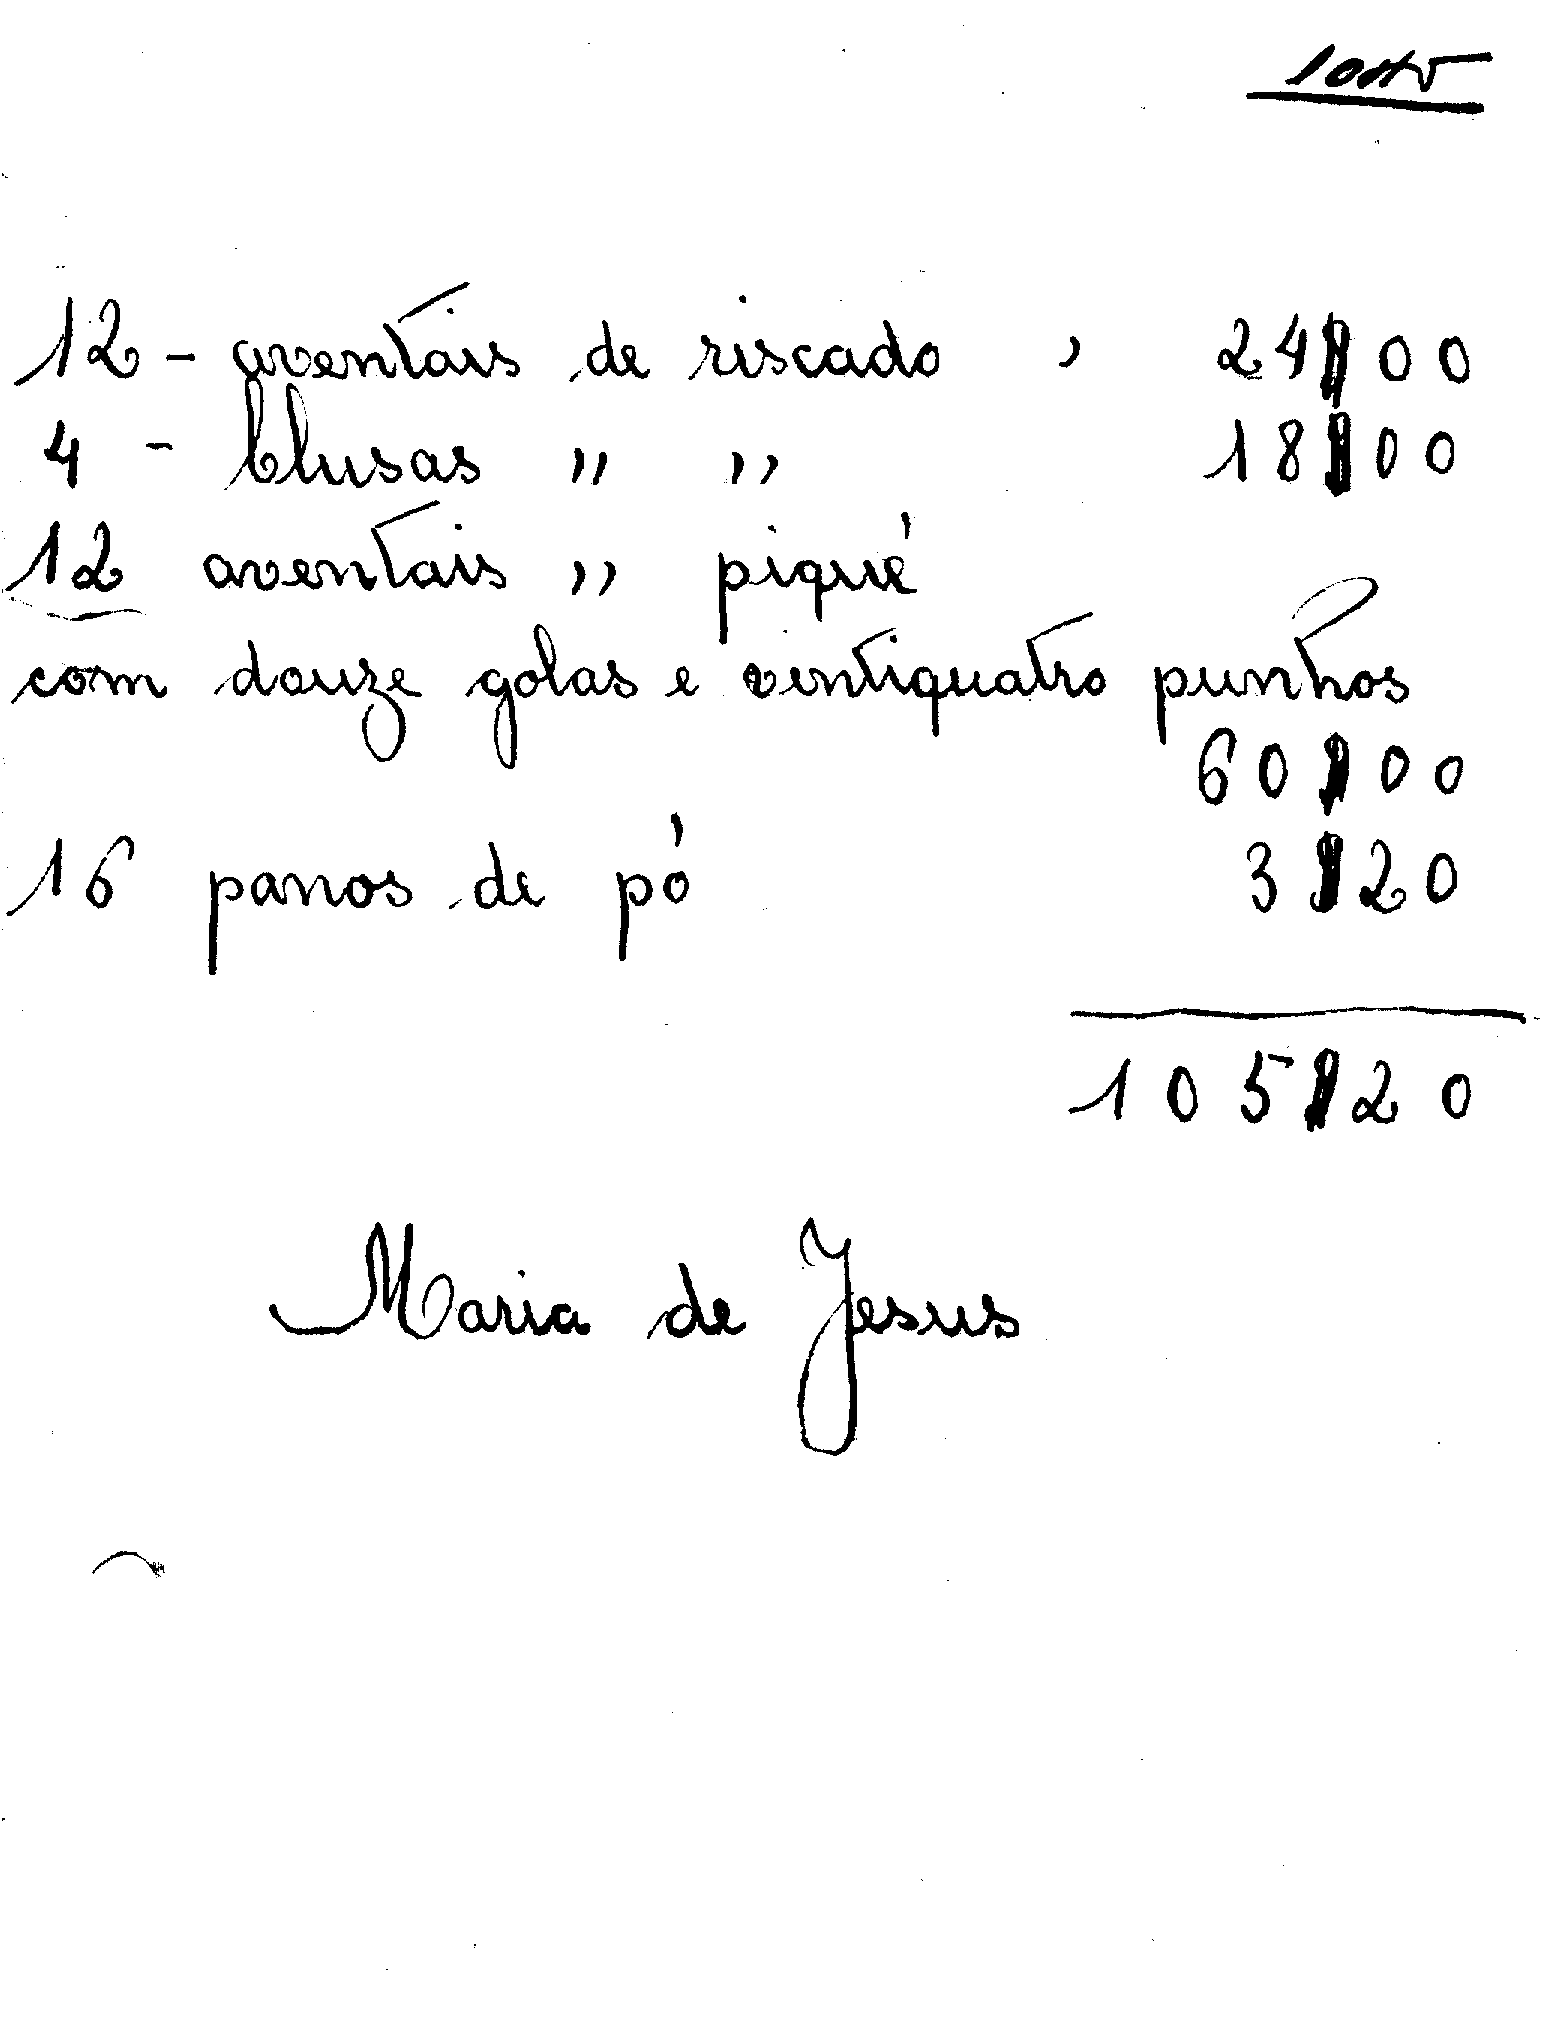 12 - aventais de riscado , 24$00
4 - blusas " " 18$00
12 aventais " piqué
com douze golas e ventiquatro punhos
60$00
16 panos de pó 3$20
105$20
Maria de Jesus